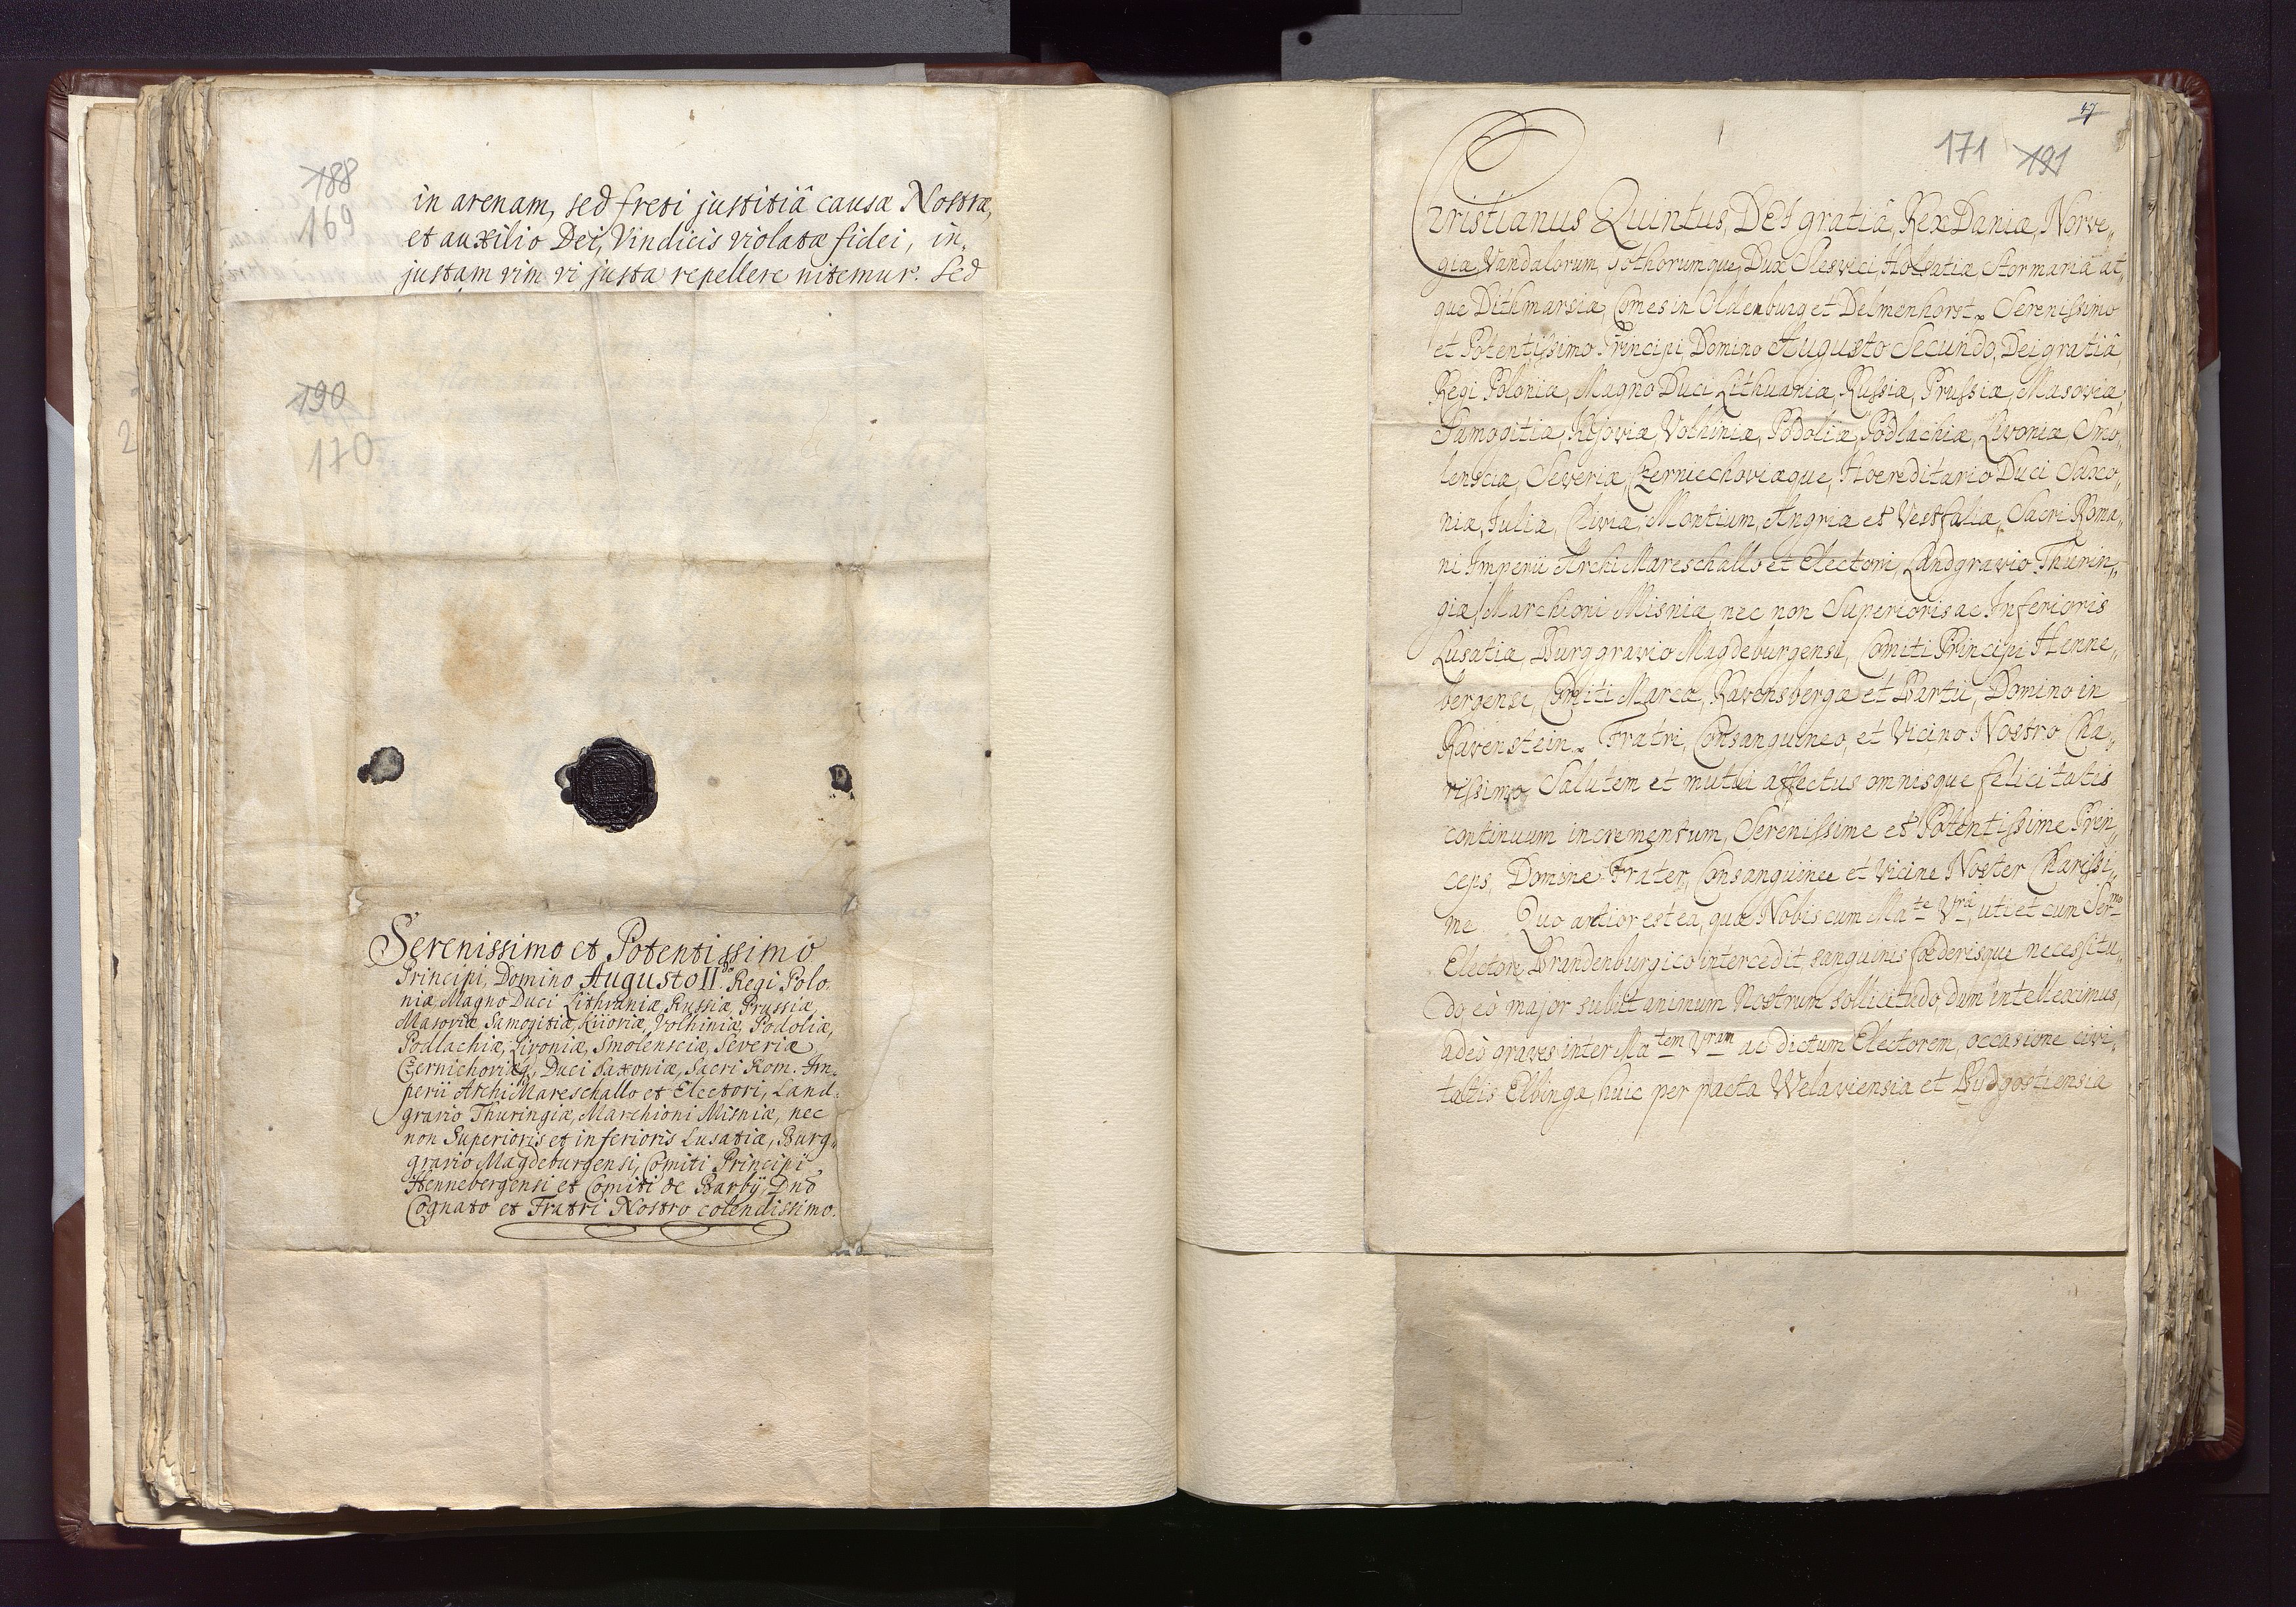 188
169
in arenam, sed freti justitiâ causæ Nostræ,
et auxilio Dei, Vindicis violatæ fidei, in„
justam vim vi justa repellere nitemur. Sed
190
170
Serenissimo et Potentissimo
Principi, Domino Augusto II.do Regi Polo„
niæ, Magno Duci Lithuaniæ, Russiæ, Prussiæ,
Masoviæ, Samogitiæ, Kiioviæ, Volhiniæ, Podoliæ,
Podlachiæ, Livoniæ, Smolensciæ, Severiæ
Czernichoviæq, Duci Saxoniæ, Sacri Rom. Im„
perii ArchiMareschallo et Electori, Land„
gravio Thuringiæ, Marchioni Misniæ, nec
non Superioris et inferioris Lusatiæ, Burg„
gravio Magdeburgensi, Comiti Principi
Hennebergensi et Comiti de Barbÿ, Dno
Cognato et Fratri Nostro colendissimo.
47
171 191
Christianus Quintus, DEI gratiâ, Rex Daniæ, Norve„
giæ, Vandalorum, Gothorumque, Dux Slesvici, Holsatiæ, Stormariæ at„
que Dithmarsiæ, Comes in Oldenburg et Delmenhorst. Serenissimo
et Potentissimo Principi, Domino Augusto Secundo, Dei gratiâ,
Regi Poloniæ, Magno Duci Lithuaniæ, Russiæ, Prussiæ, Masoviæ,
Samogitiæ, Kijoviæ, Volhiniæ, Podoliæ, Podlachiæ, Livoniæ, Smo„
lensciæ, Severiæ, Czerniechoviæque, Hoereditario Duci Saxo„
niæ, Juliæ, Cliviæ, Montium, Angriæ et Vestfaliæ, Sacri Roma„
ni Imperii Archi Mareschallo et Electori, Landgravio Thurin„
giæ, Marchioni Misniæ, nec non Superioris ac Inferioris
Lusatiæ, Burggravio Magdeburgensi, Comiti Principi Henne„
bergensi, Comiti Marcæ, Ravensbergæ et Bartii, Domino in
Ravenstein. Fratri, Consanguineo, et Vicino Nostro Cha„
rissimo, Salutem et mutui affectus omnisque felicitatis
continuum incrementum, Serenissime et Potentissime Prin„
ceps, Domine Frater, Consanguinee et Vicine Noster Charissi„
me. Quo arctior est ea, quæ Nobis cum Mate Vrâ, uti et cum Sermo
Electore Brandenburgico intercedit, sanguinis foederisque necessitu„
do, eò major subiit animum Nostrum sollicitudo, dum intelleximus,
adeò graves inter Matem Vram ac dictum Electorem, occasione civi„
tatis Elbingæ, huic per pacta Welaviensia et Bydgostiensia